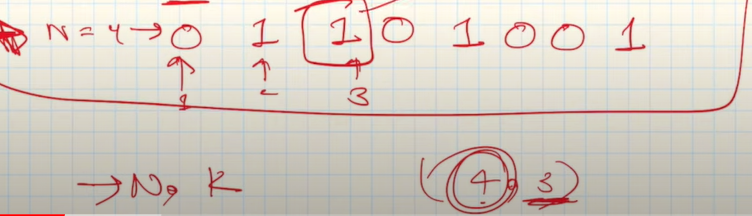 N = 4 → 0 1 1 0 1 0 0 1
1 2 3
→ N, K (4, 3)